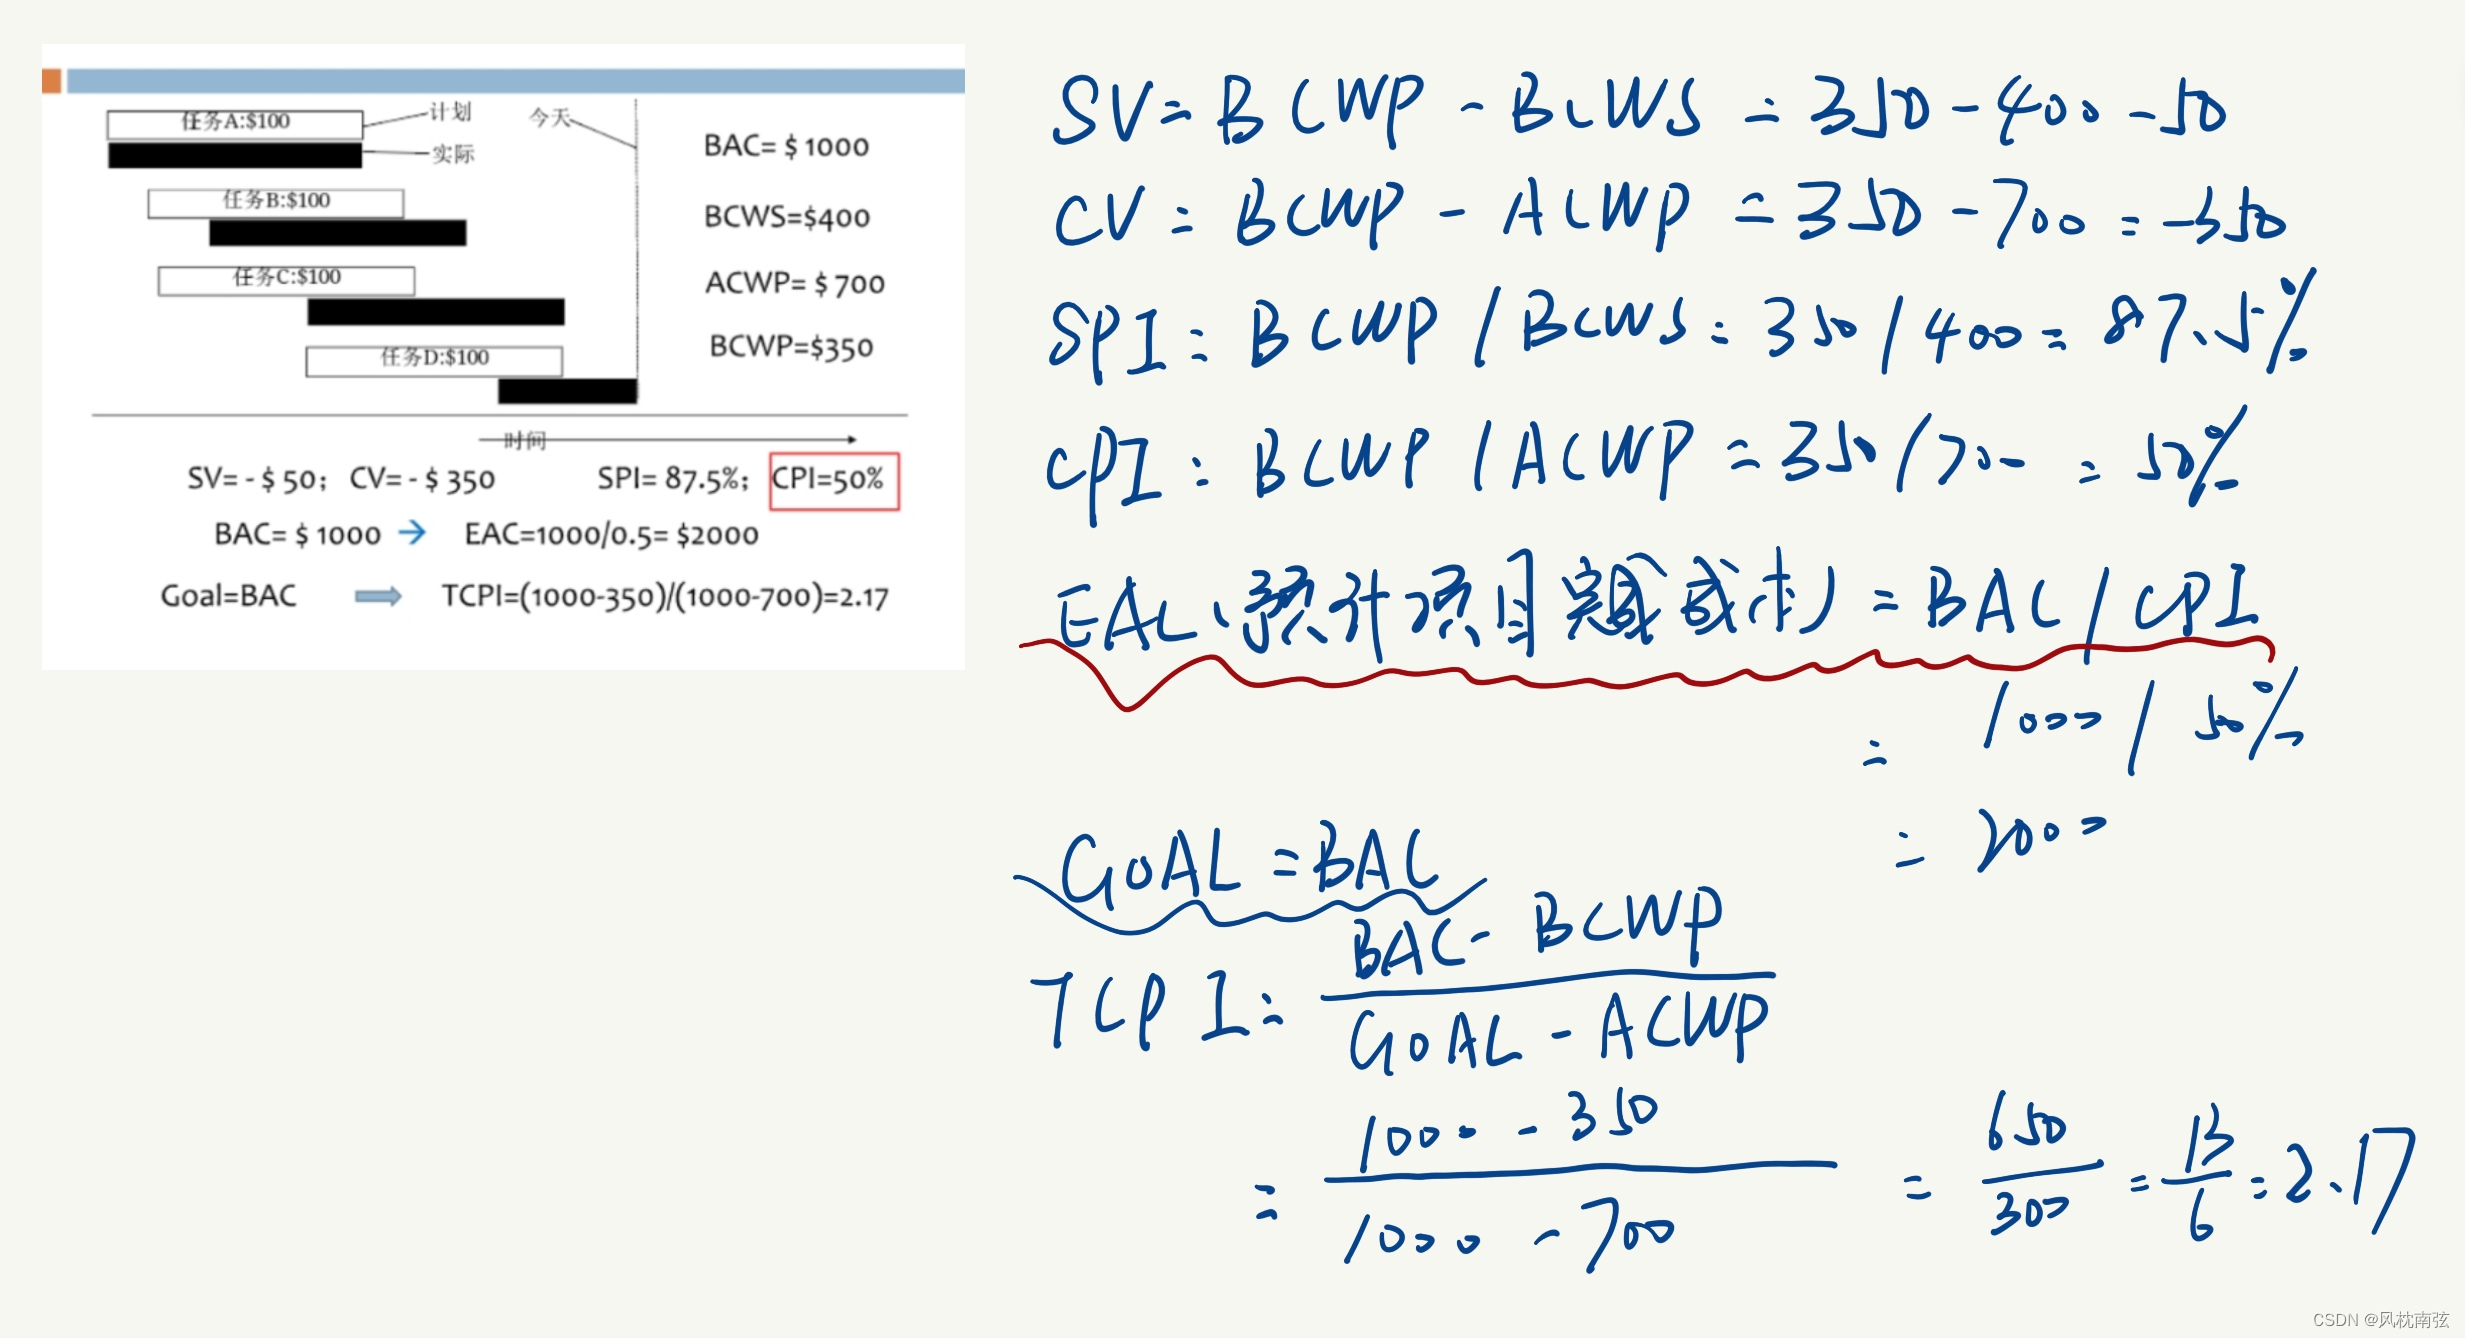 任务A:$100
计划
今天
实际
任务B:$100
任务C:$100
任务D:$100
BAC= $ 1000
BCWS=$400
ACWP= $ 700
BCWP=$350
时间
SV= - $ 50; CV= - $ 350 SPI= 87.5%; CPI=50%
BAC= $ 1000 → EAC=1000/0.5= $2000
Goal=BAC TCPI=(1000-350)/(1000-700)=2.17
SV= BCWP - BCWS = 350-400 -50
CV = BCWP - ACWP = 350-700 = -350
SPI = BCWP / BCWS = 350/400 = 87.5%
CPI = BCWP / ACWP = 350/700 = 50%
EAC(预计项目完成成本) = BAC / CPI
= 1000 / 50%
= 2000
GOAL = BAC
TCPI = BAC - BCWP / GOAL - ACWP
= 1000 - 350 / 1000 - 700 = 650/300 = 13/6 = 2.17
CSDN @风枕南弦